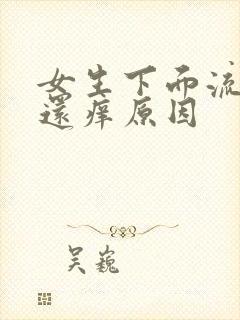 女生下而流
還痒原因
吴巍